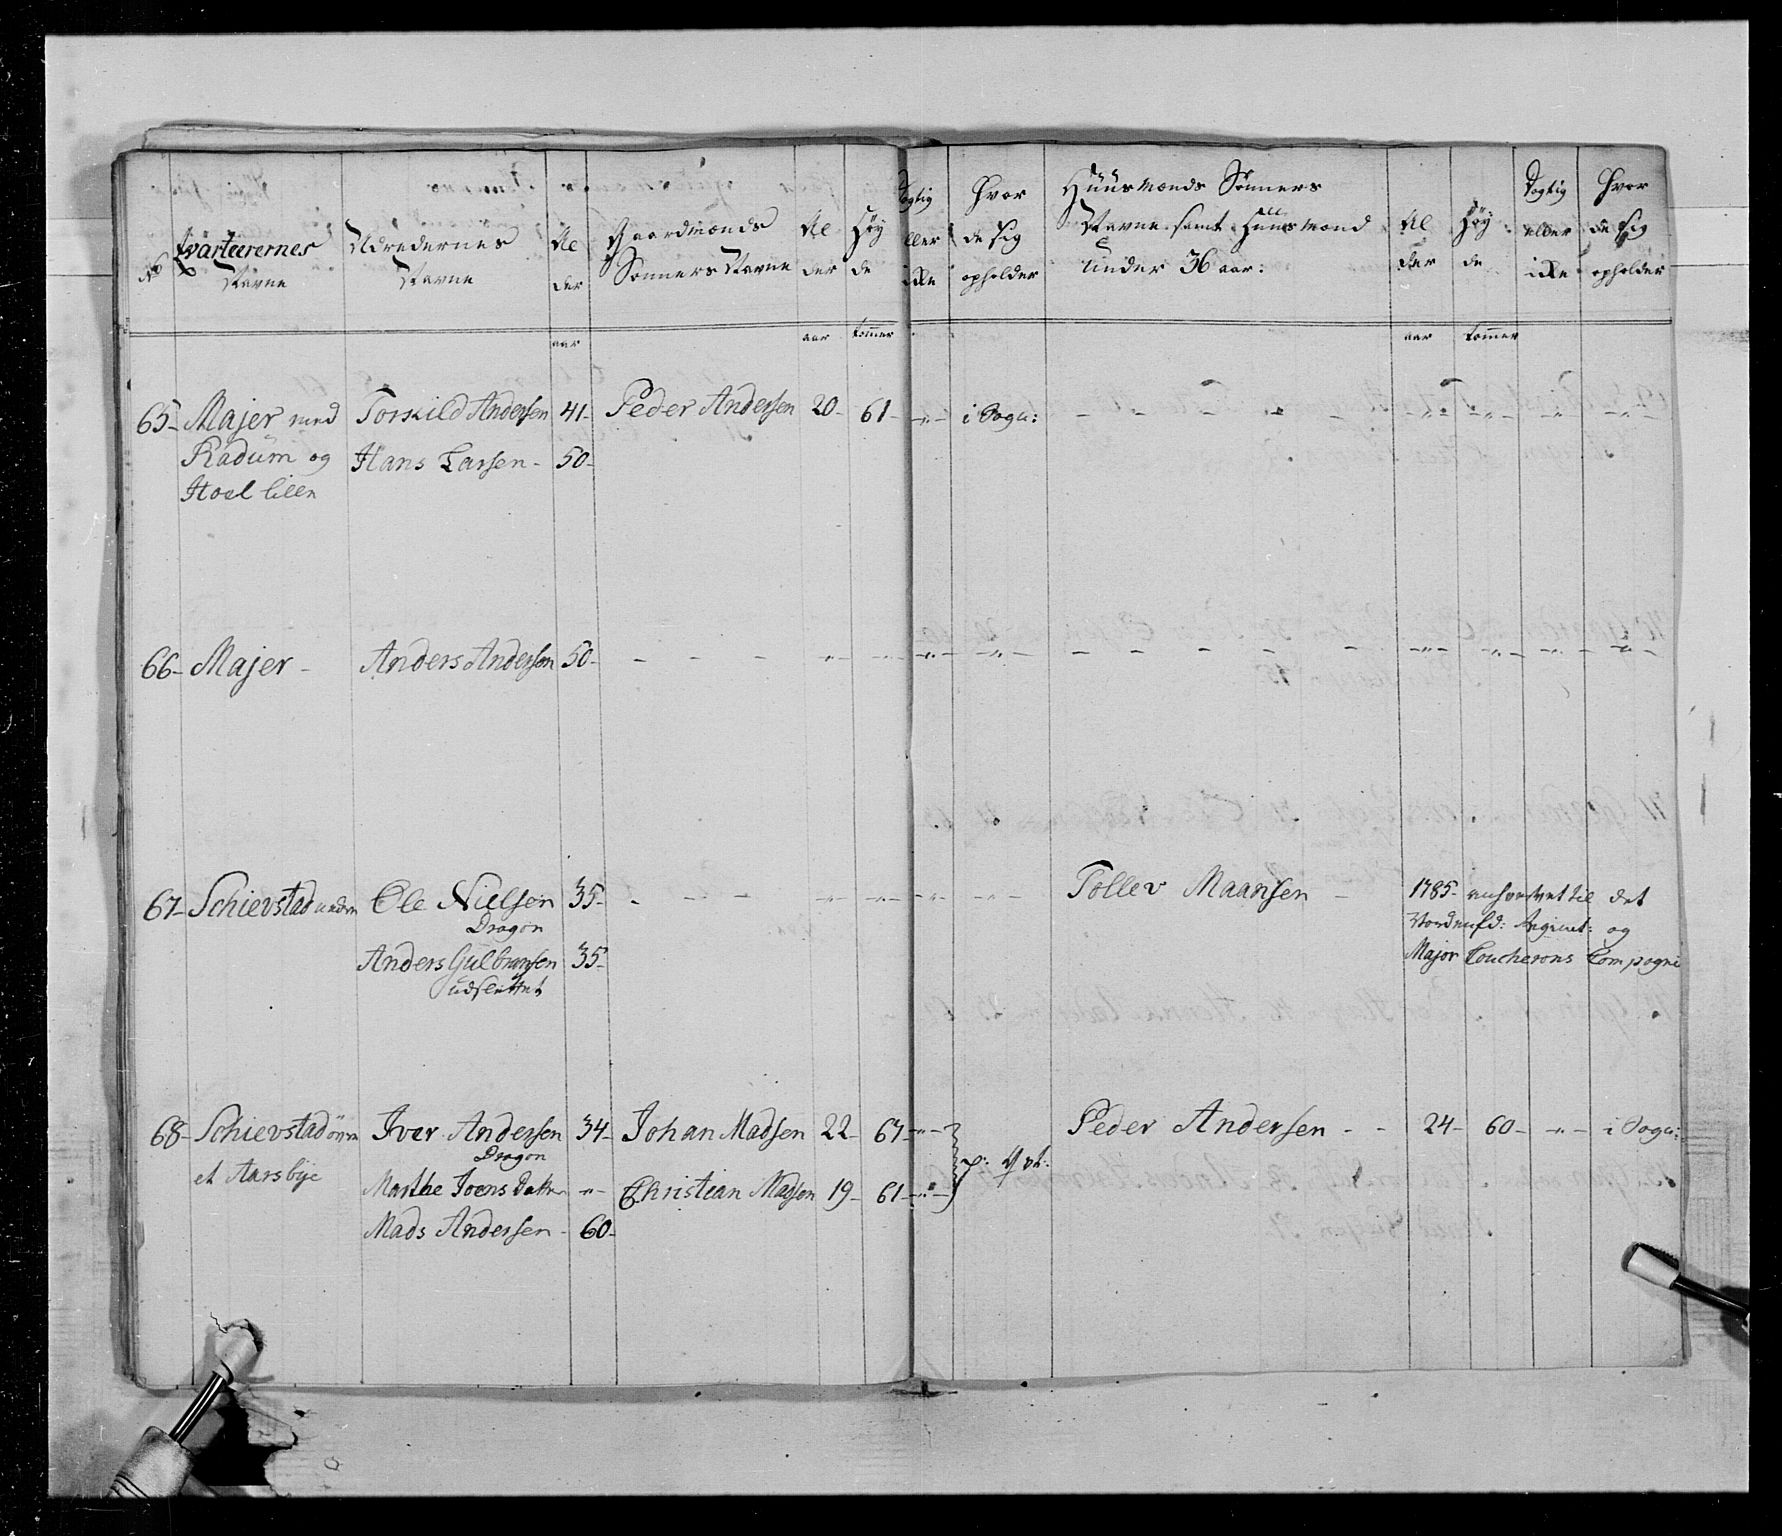 No Qvarteerernes Navne
Udredernes Navne
Alder
Gaardmænds Sønners Navne
Alder
Høyde
Dygtig eller ikke
Hvor de sig opholder
Huusmænds Sønners Navne samt Huusmænd under 36 aar:
Alder
Høyde
Dygtig eller ikke
Hvor de sig opholder
aar aar tommer aar tommer
65 - Majer med Torskild Andersen 41 - Peder Andersen 20 - 61 - " - i Sogn:
Radum og Hans Larsen - 50 -
Hoel lille
66 - Majer - Anders Andersen 50 -
67 - Schievstad neden Ole Nielsen 35 - Tollev Maansen - 1785 - anhvervet til det
Dragon Nordenfd: Regimt: og
Anders Gulbransen 35 - Major Coucherons Compagni
udslettet
68 - Schievstad øvre Iver Andersen 34 - Johan Madsen 22 - 67 - " - Peder Andersen - - 24 - 60 - " - i Sogn:
Dragon
et Aarsbye Marthe Joens Datter " - Christian Madsen 19 - 61 - " -
Mads Andersen - 60 -